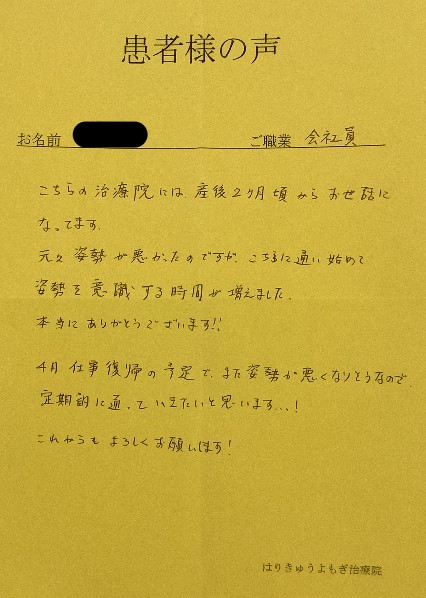 患者様の声
お名前 ご職業 会社員
こちらの治療院には、産後2ヶ月頃からお世話に
なってます。
元々姿勢が悪かったのですが、こちらに通い始めて
姿勢を意識する時間が増えました。
本当にありがとうございます!!
4月仕事復帰の予定で、また姿勢が悪くなりそうなので、
定期的に通っていきたいと思います...!
これからもよろしくお願いします!
はりきゅうよもぎ治療院